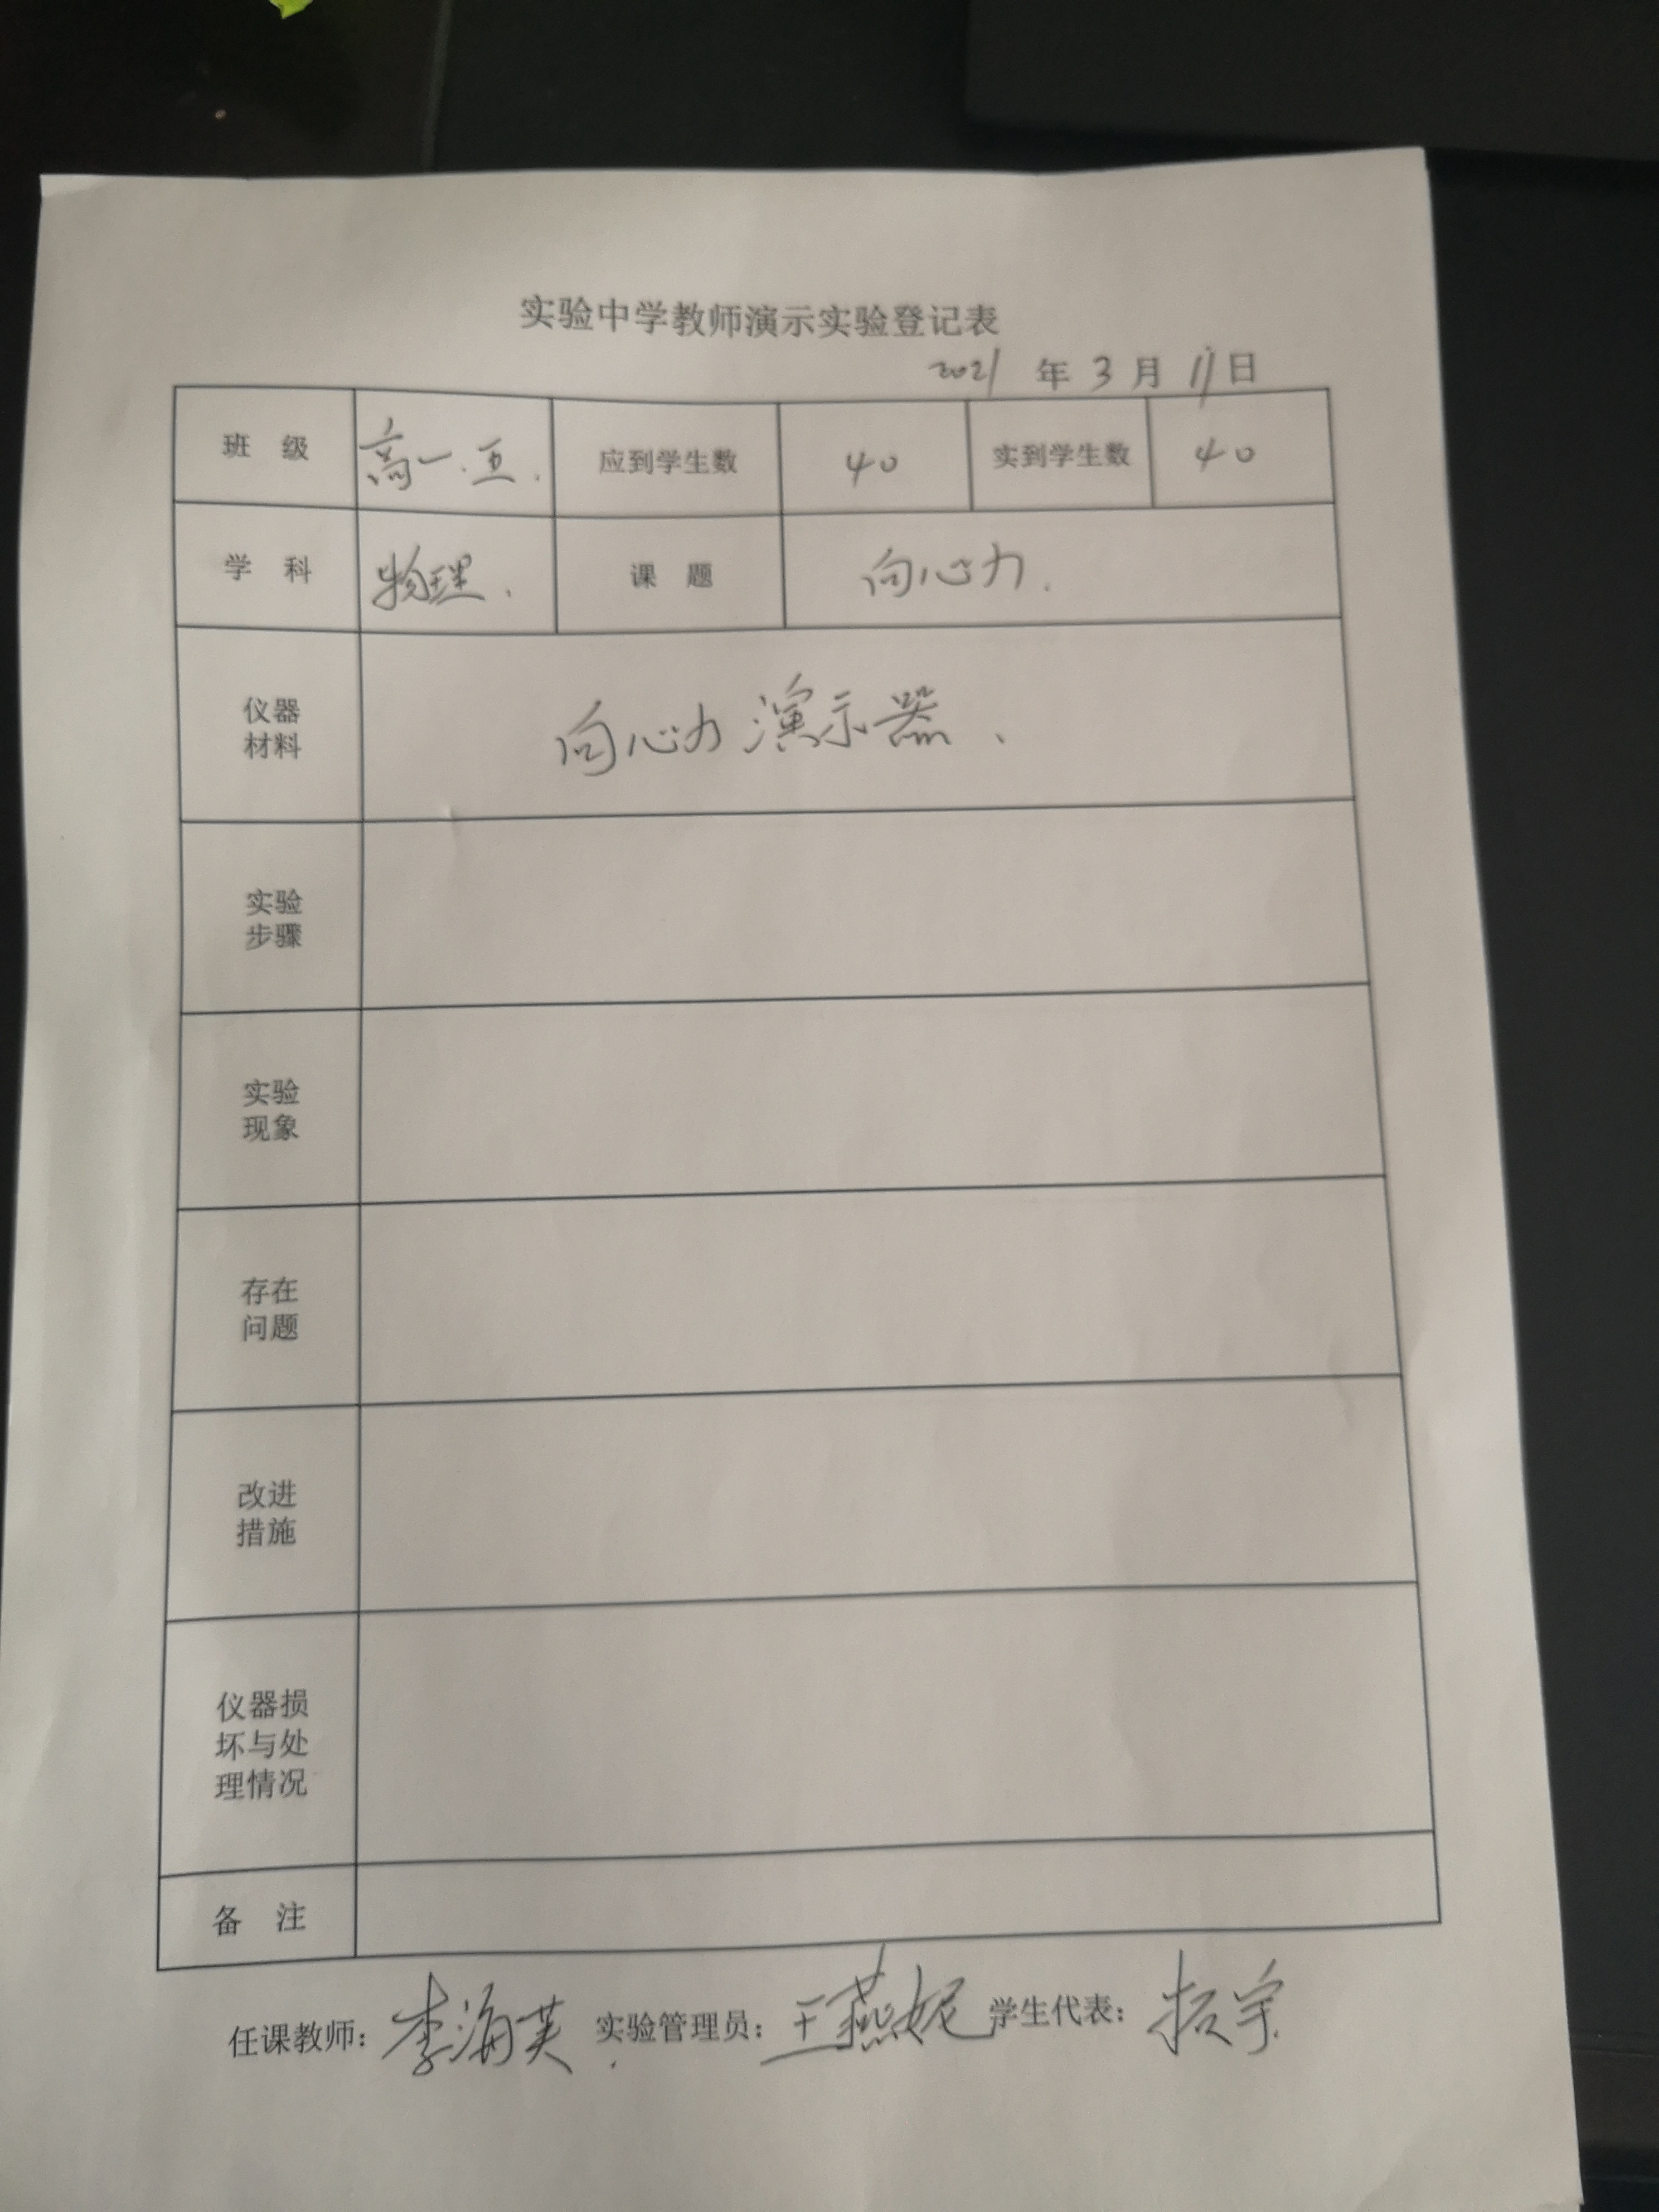 实验中学教师演示实验登记表
2021 年 3 月 11 日
班 级 高一.五. 应到学生数 40 实到学生数 40
学 科 物理. 课 题 向心力.
仪器
材料
向心力演示器、
实验
步骤
实验
现象
存在
问题
改进
措施
仪器损
坏与处
理情况
备 注
任课教师: 李海芙. 实验管理员: 王燕妮 学生代表: